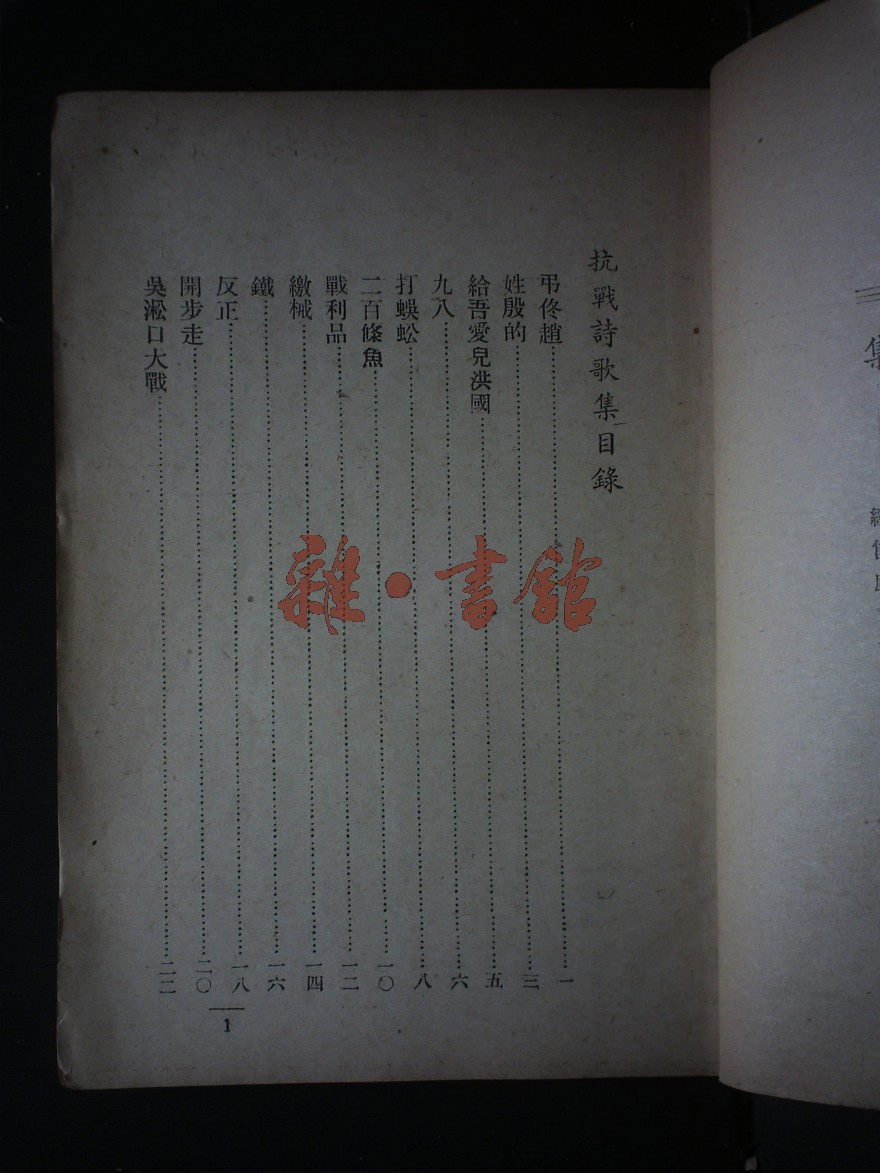 抗戰詩歌集目錄
弔佟趙……一
姓殷的……三
給吾愛兒洪國……五
九八……六
打蜈蚣……八
二百條魚……一〇
戰利品……一二
繳械……一四
鐵……一六
反正……一八
開步走……二〇
吳淞口大戰……二二
1
雜·書館
集